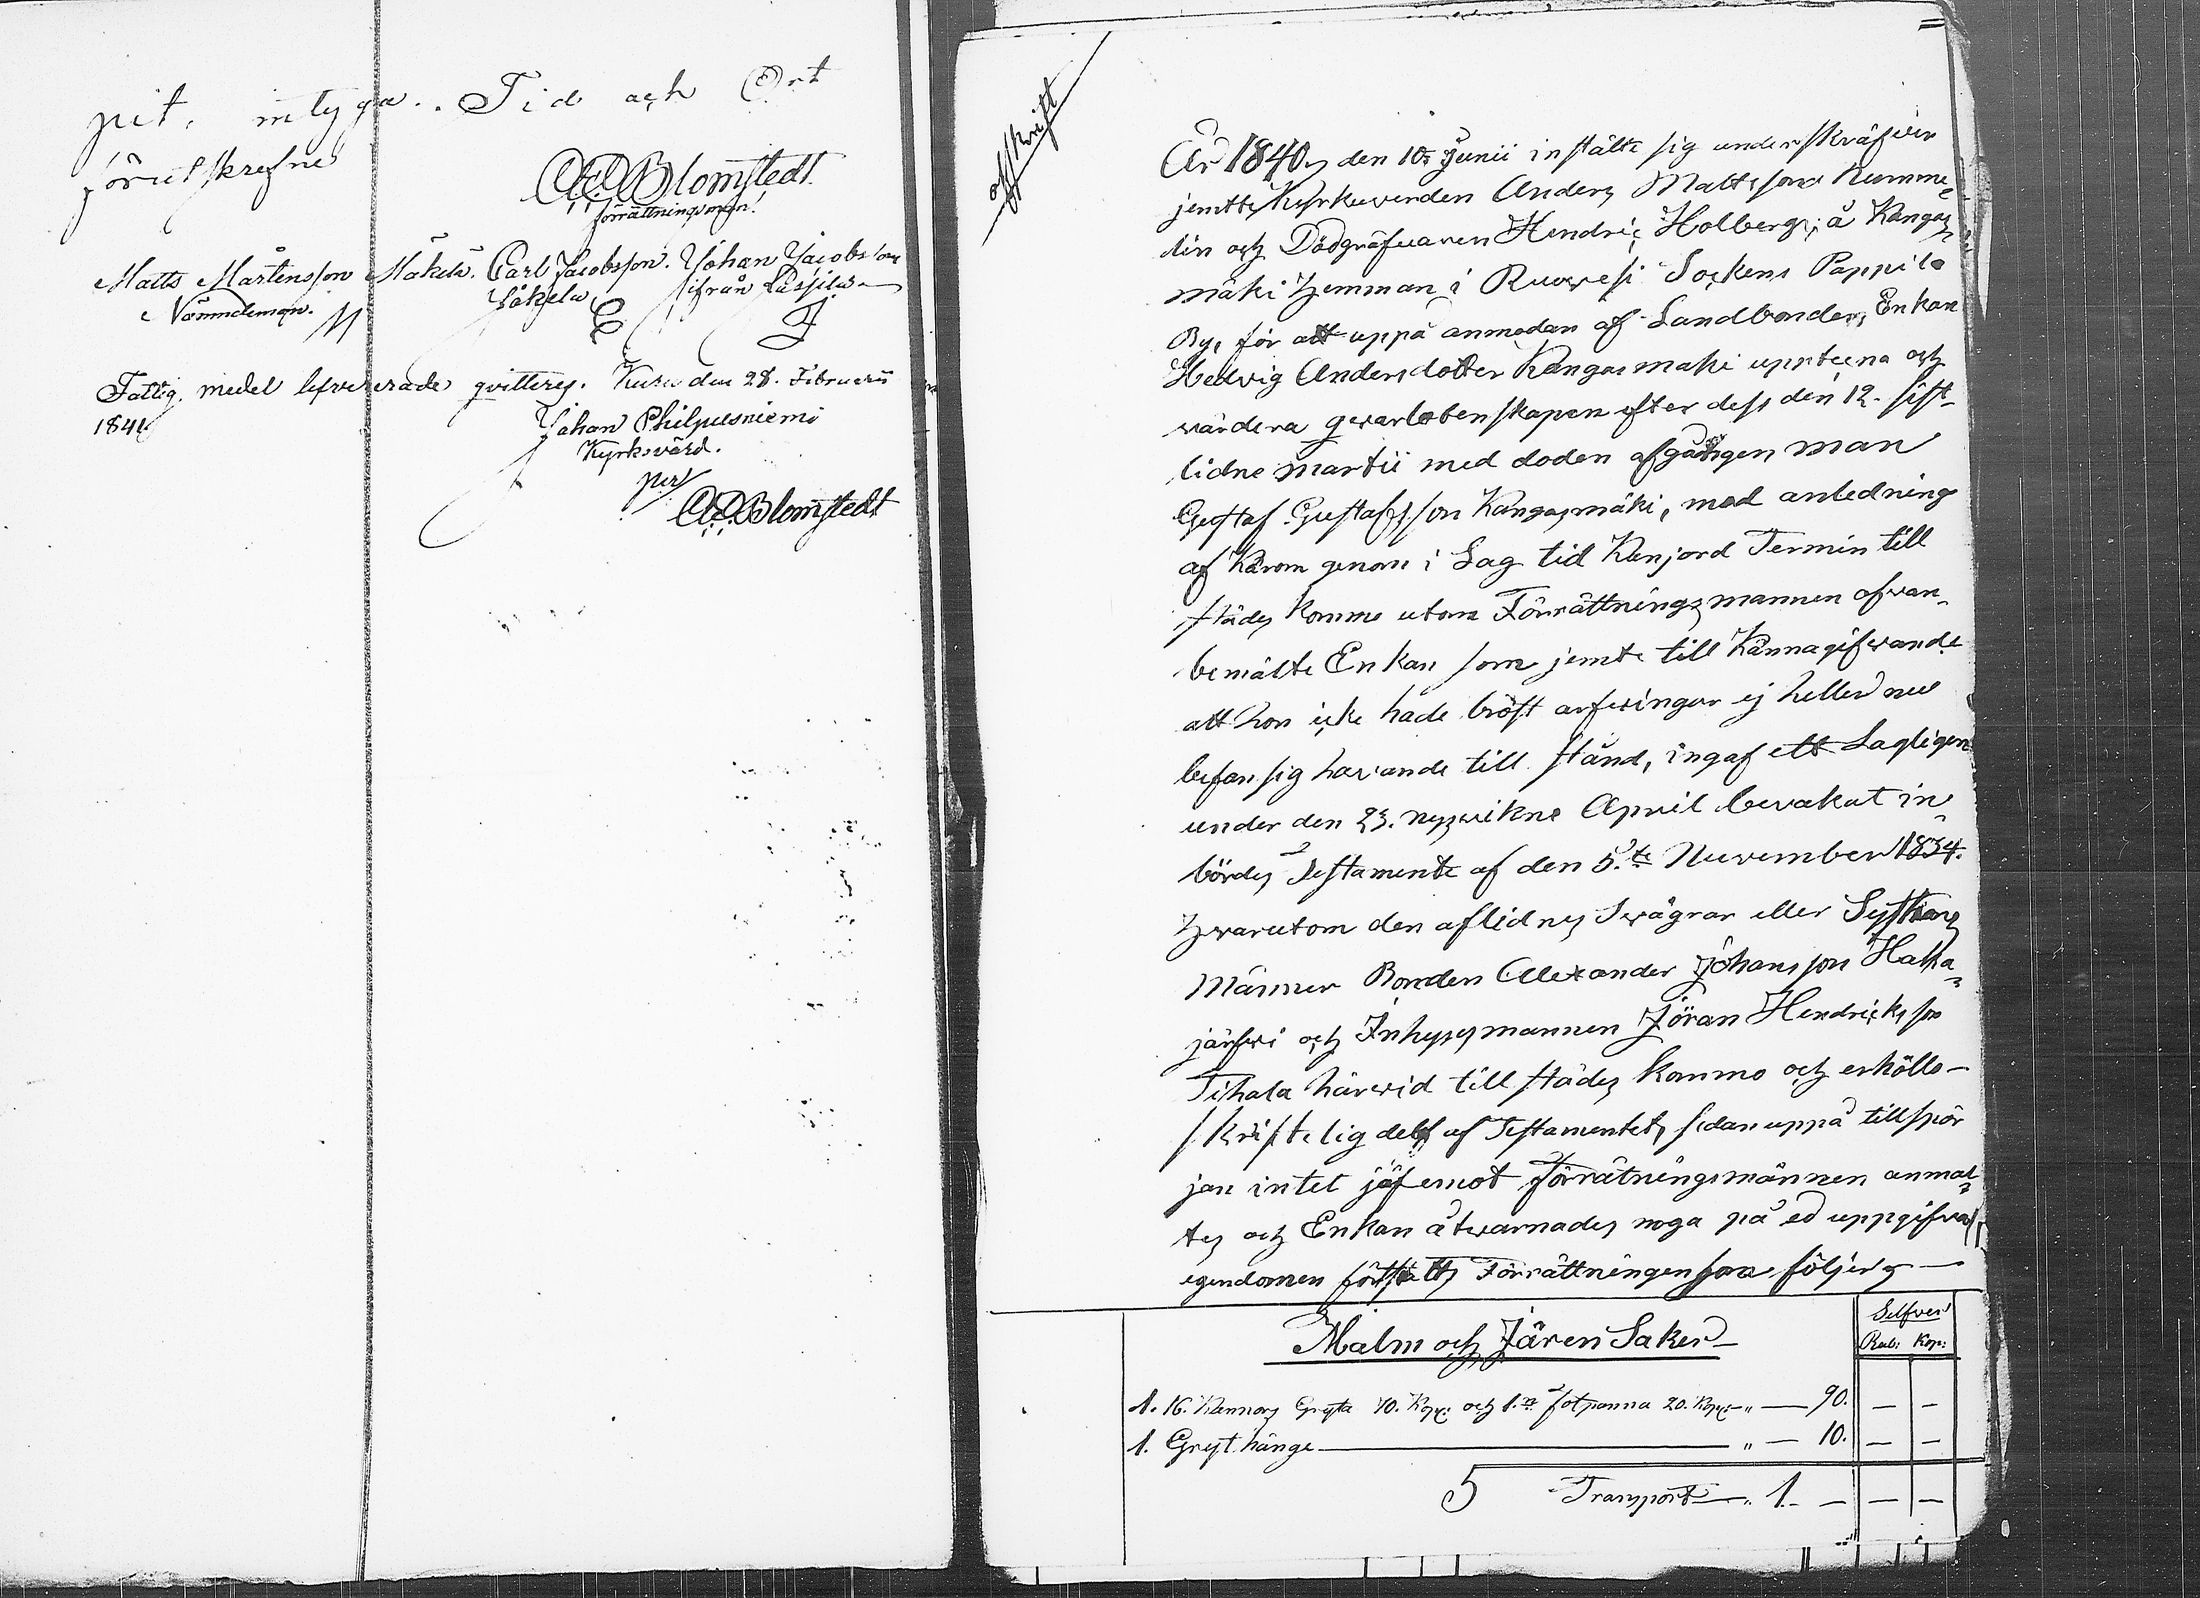 pit, intyga. Tid och Ort
förutskrefne
A E Blomstedt.
förrättningsman.
Matts Mårtensson Mäkelä. Carl Jacobsson. Johan Jacobsson
Nämndeman. Jäkelä ifrån Passila
Fattig medel lefvererade qvitterey. Kuru den 28. Februarii
1841
Johan Philpusniemi
Kyrkovärd.
per
A E Blomstedt
afskrift
År 1840, den 10 Junii instälte sig underskräfven
jemtte Kyrkuverden Anders Mattsson Rumme-
lin och Dödgräfvaren Hendric Holberg, å Kangas
mäki Hemman i Ruovesi Sockens Pappila
By, för att uppå anmodan af Landbondens Enkan
Hedvig Andersdotter Kangasmäki upptecna och
värdera qvarlåtenskapen efter dess den 12. sist-
lidne Martii med doden afgången man
Gustaf Gustafsson Kangasmäki, med anledning
af Härom genom i Lag tid Kunjord Termin till
städes komme utom Förrättningsmannen ofvan-
bemälte Enkan som jemte till Kännagifvande
att hon icke hade bröst arfvingar ej heller nu
befan sig havande till stånd, ingaf ett Lagligen
under den 23. nyssvikne April bevakat in-
bördes Testamente af den 5.te November 1834.
Hvarutom den aflidnes Svågrar eller Systrars
Männer Bonden Allexander Johansson Haka-
järfvi och Inhyses mannen Jöran Hendricksson
Tihala härvid till städes kommo och erhöllo-
skriftelig delf af Testamentet, sedan uppå tillspör
jan intet jäf emot förrätningsmännen anmäl-
tes och Enkan åtvarnades noga på ed uppgifva
egendomen förtsattes Förrättningen som följer,
Malm och Jären Saker
Selfver
Rub: Kop:
1. 16. Kannors Gryta 70. Kop: och 1. n fotpanna 20. Kop: " — 90. — —
1. Gryt hänge — " — 10. — —
5 Transport — " 1. — — —